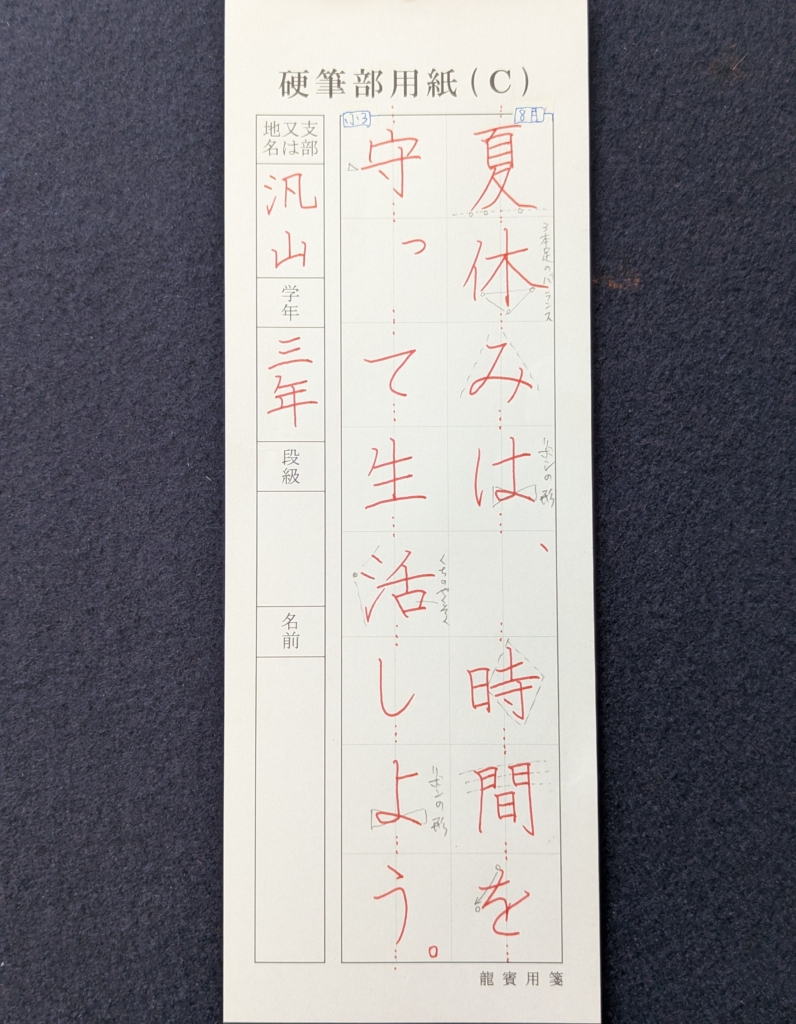 硬筆部用紙(C)
8月
夏休みは、時間を
3本足のバランス
リボンの形
小3
守って生活しよう。
リボンの形
地名又は支部
汎山
学年
三年
段級
名前
龍賓用箋